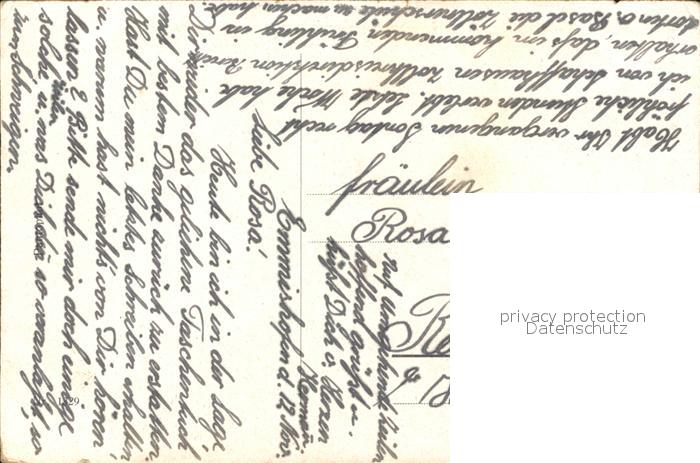 Emmishofen d. 12. Nov.
Liebe Rosa!
Heute bin ich in der Lage
Dir wieder das geliehene Taschentuch
mit bestem Danke zurück zu erstatten.
Hast Du mein letztes Schreiben erhalten
u. warum hast nichts von Dir hören
lassen? Bitte sende mir doch einige
solche u. was Dich so veranlasst, so
zu schweigen.
Habt Ihr vergangenen Sontag recht
fröhliche Stunden verlebt. Letzte Woche habe
ich von Schaffhausen Zollkreisdirektion
erhalten, dass im kommenden Frühling in
dorten o. Basel die Zöllnerschule zu machen habe.
Auf
hoffend grüsst u.
küsst Dich v. Herzen
Fräulein
Rosa
1929
privacy protection
Datenschutz